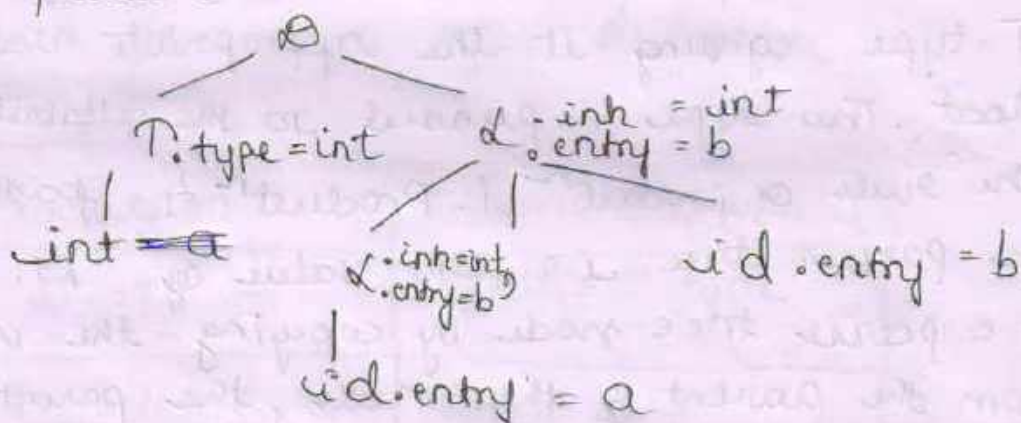 D
T.type = int
L .inh = int
.entry = b
int = a
L .inh = int,
.entry = b
,
id.entry = b
id.entry = a